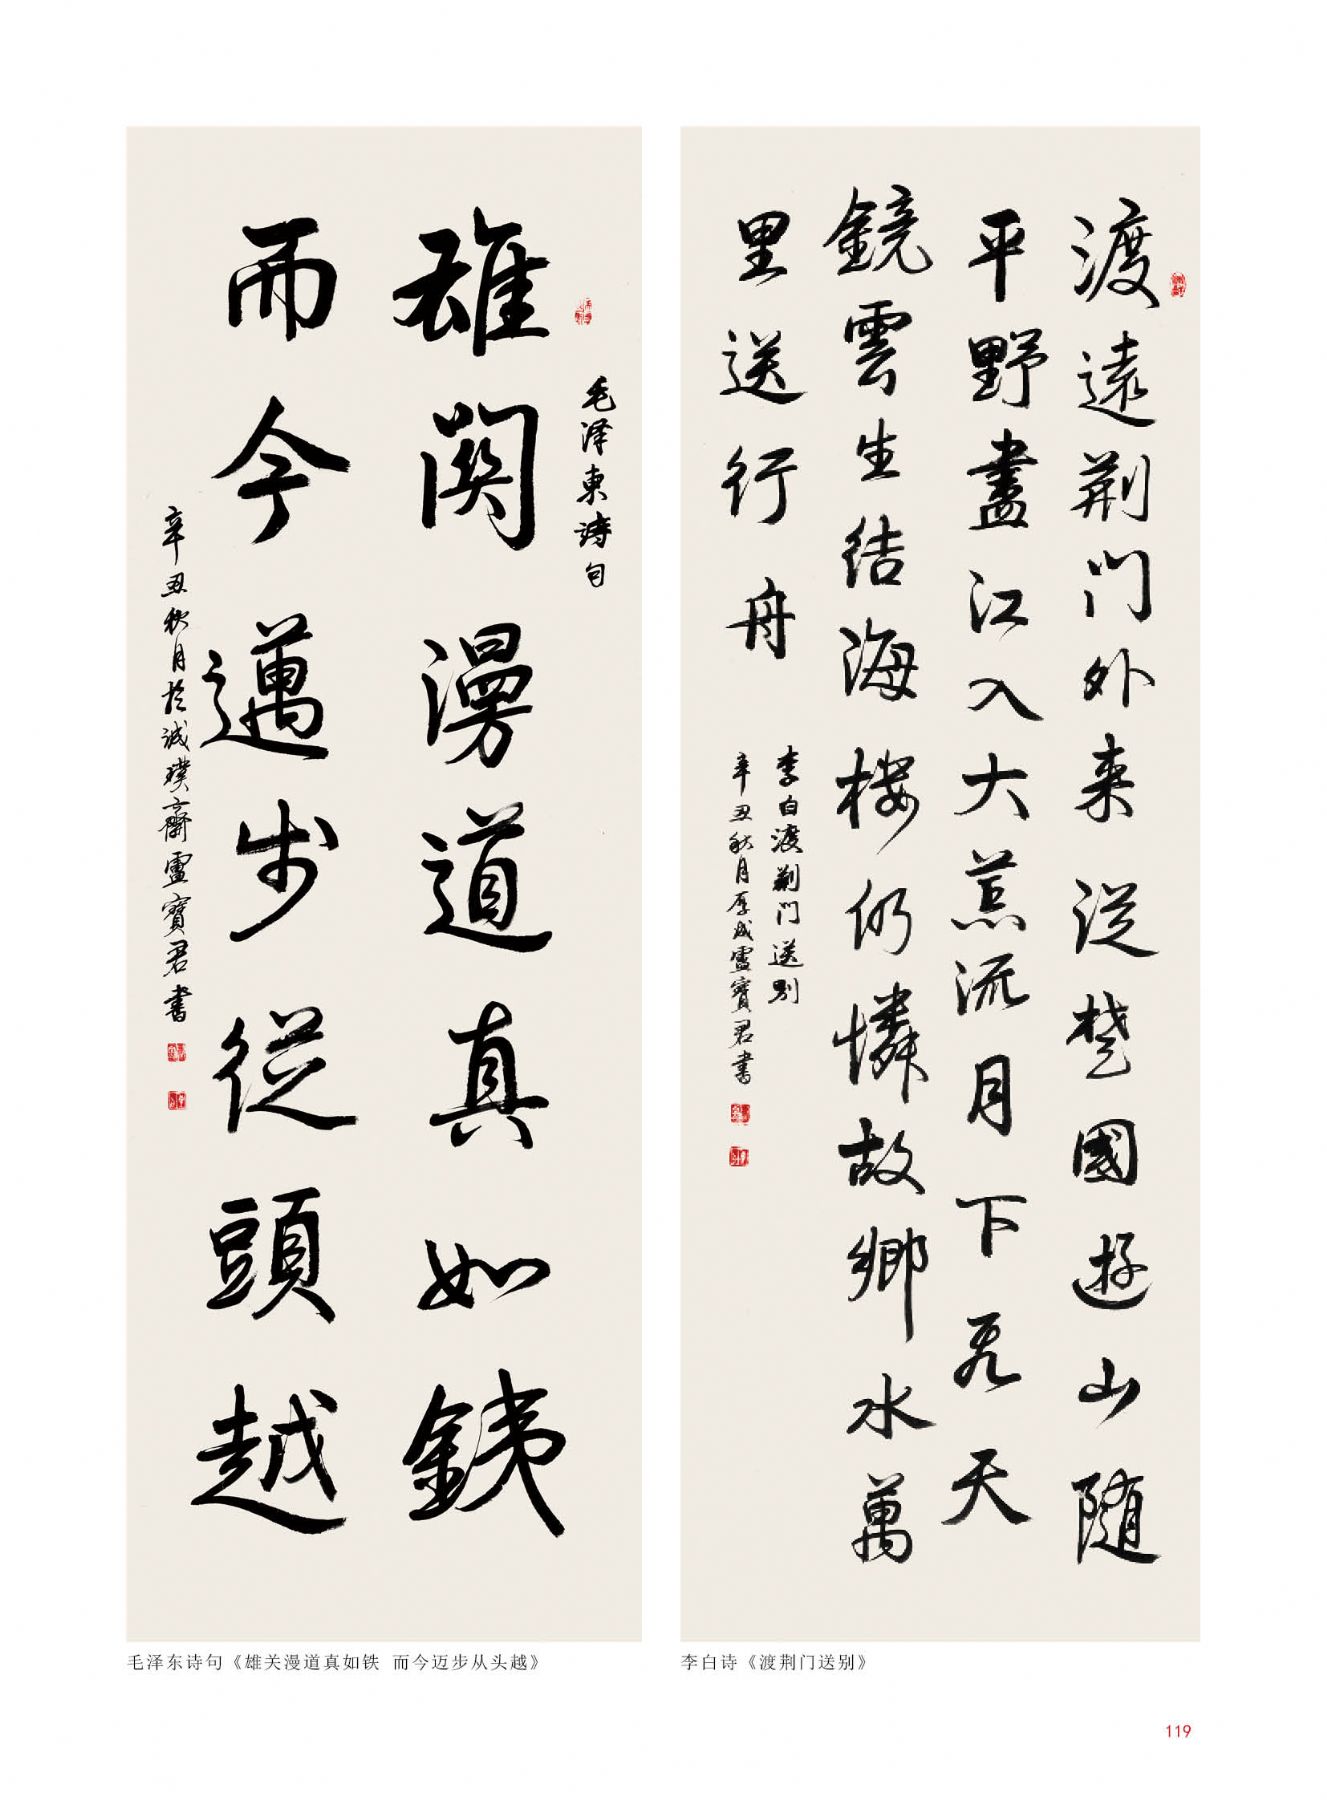 毛泽東诗句
雄関漫道真如銕
而今邁步從頭越
辛丑秋月於诚璞齋盧寶君書
毛泽东诗句《雄关漫道真如铁 而今迈步从头越》
渡遠荆門外来從楚國遊山隨
平野盡江入大荒流月下飛天
鏡雲生结海楼仍憐故鄉水萬
里送行舟
李白渡荆門送别
辛丑秋月厚成盧寶君書
李白诗《渡荆门送别》
119